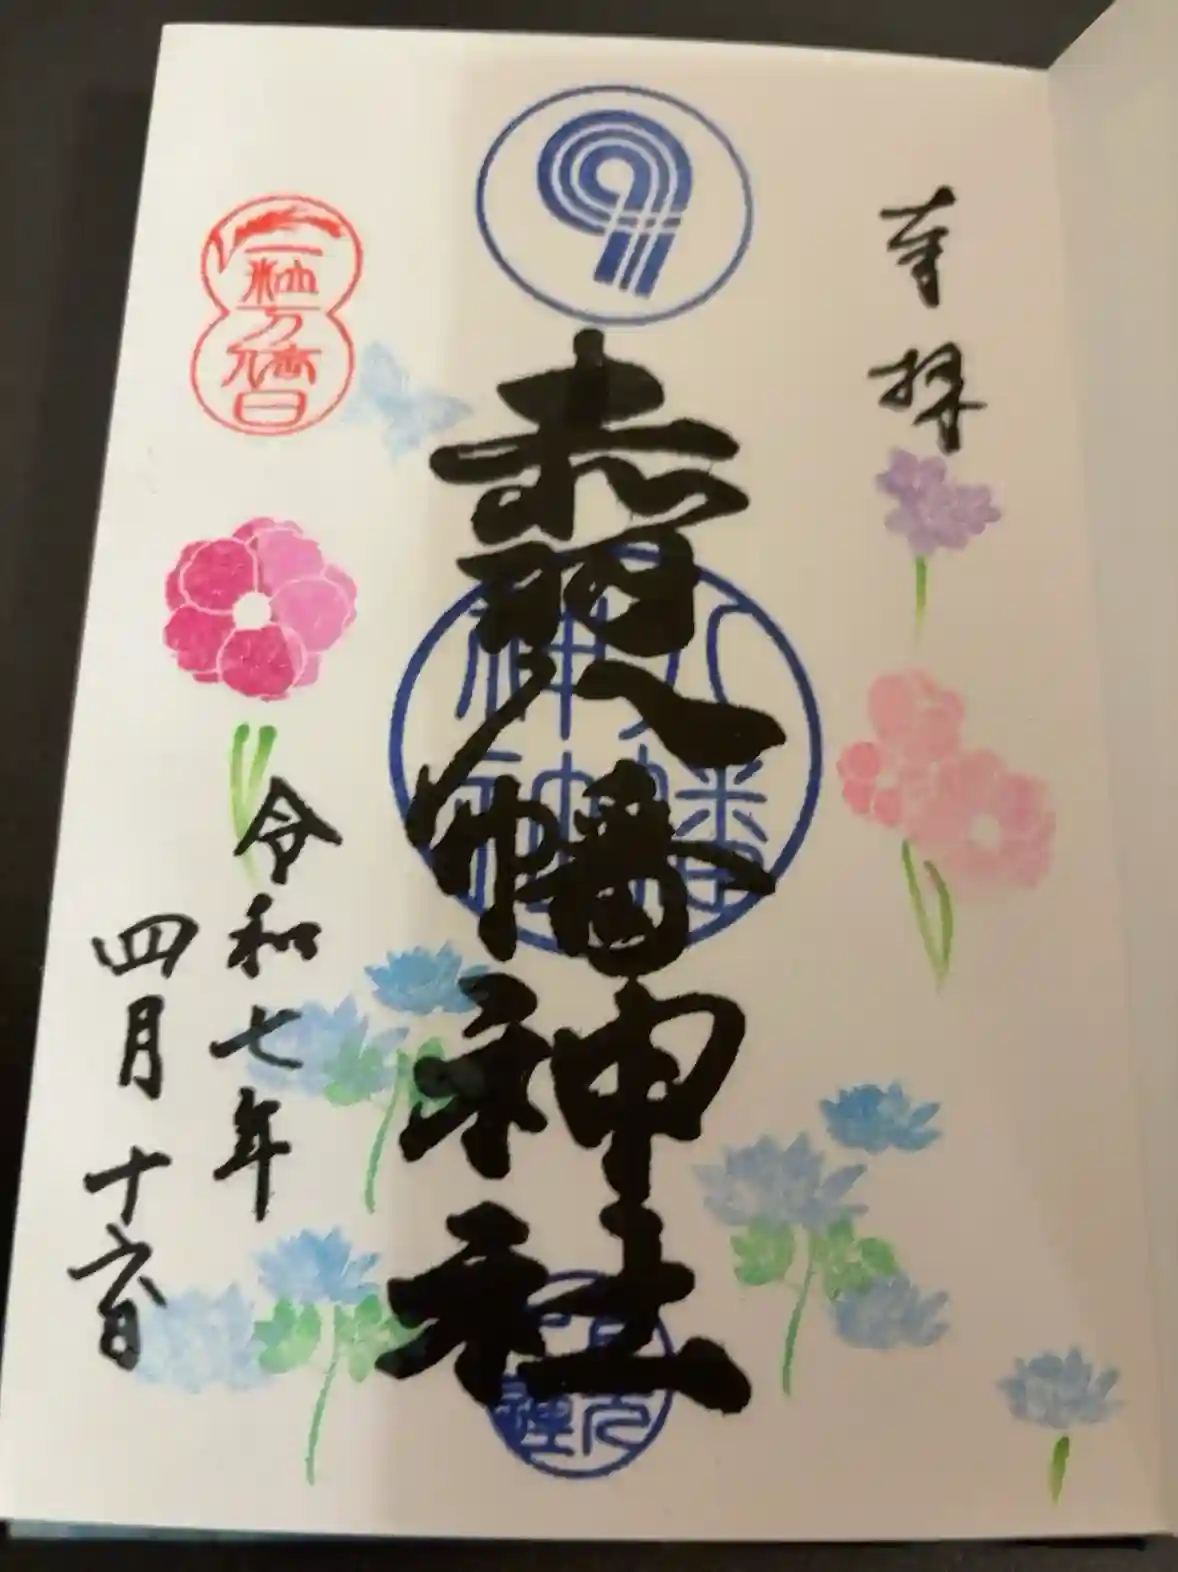 奉拝
赤羽八幡神社
令和七年
四月十六日
一粒
万倍日